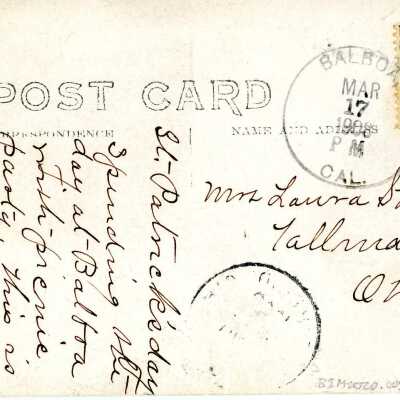 POST CARD
CORRESPONDENCE
NAME AND ADDRESS
BALBOA
MAR
17
1908
P M
CAL.
St. Patrick's day
Spending the
day at Balboa
with picnic
party, this is
Mrs Laura